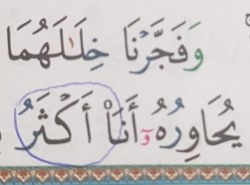 وَفَجَّرْنَا خِلَٰلَهُمَا
يُحَاوِرُهُۥٓ أَنَا۠ أَكْثَرُ